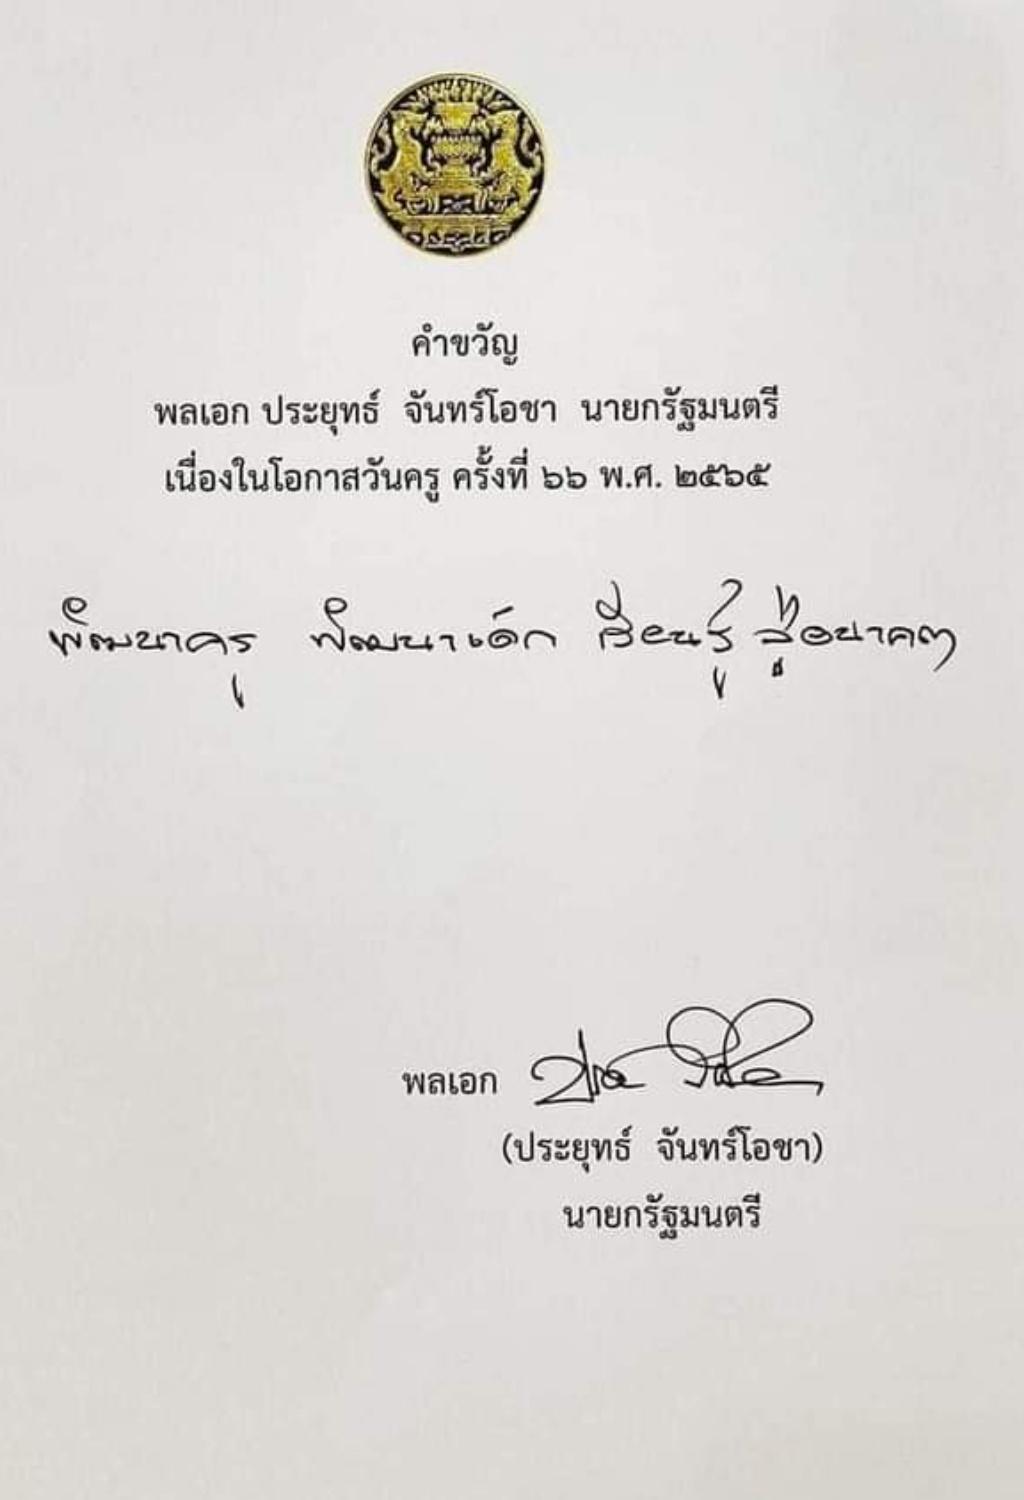 คำขวัญ
พลเอก ประยุทธ์ จันทร์โอชา นายกรัฐมนตรี
เนื่องในโอกาสวันครู ครั้งที่ ๖๖ พ.ศ. ๒๕๖๕
พัฒนาครู พัฒนาเด็ก เรียนรู้ สู่อนาคต
พลเอก
(ประยุทธ์ จันทร์โอชา)
นายกรัฐมนตรี